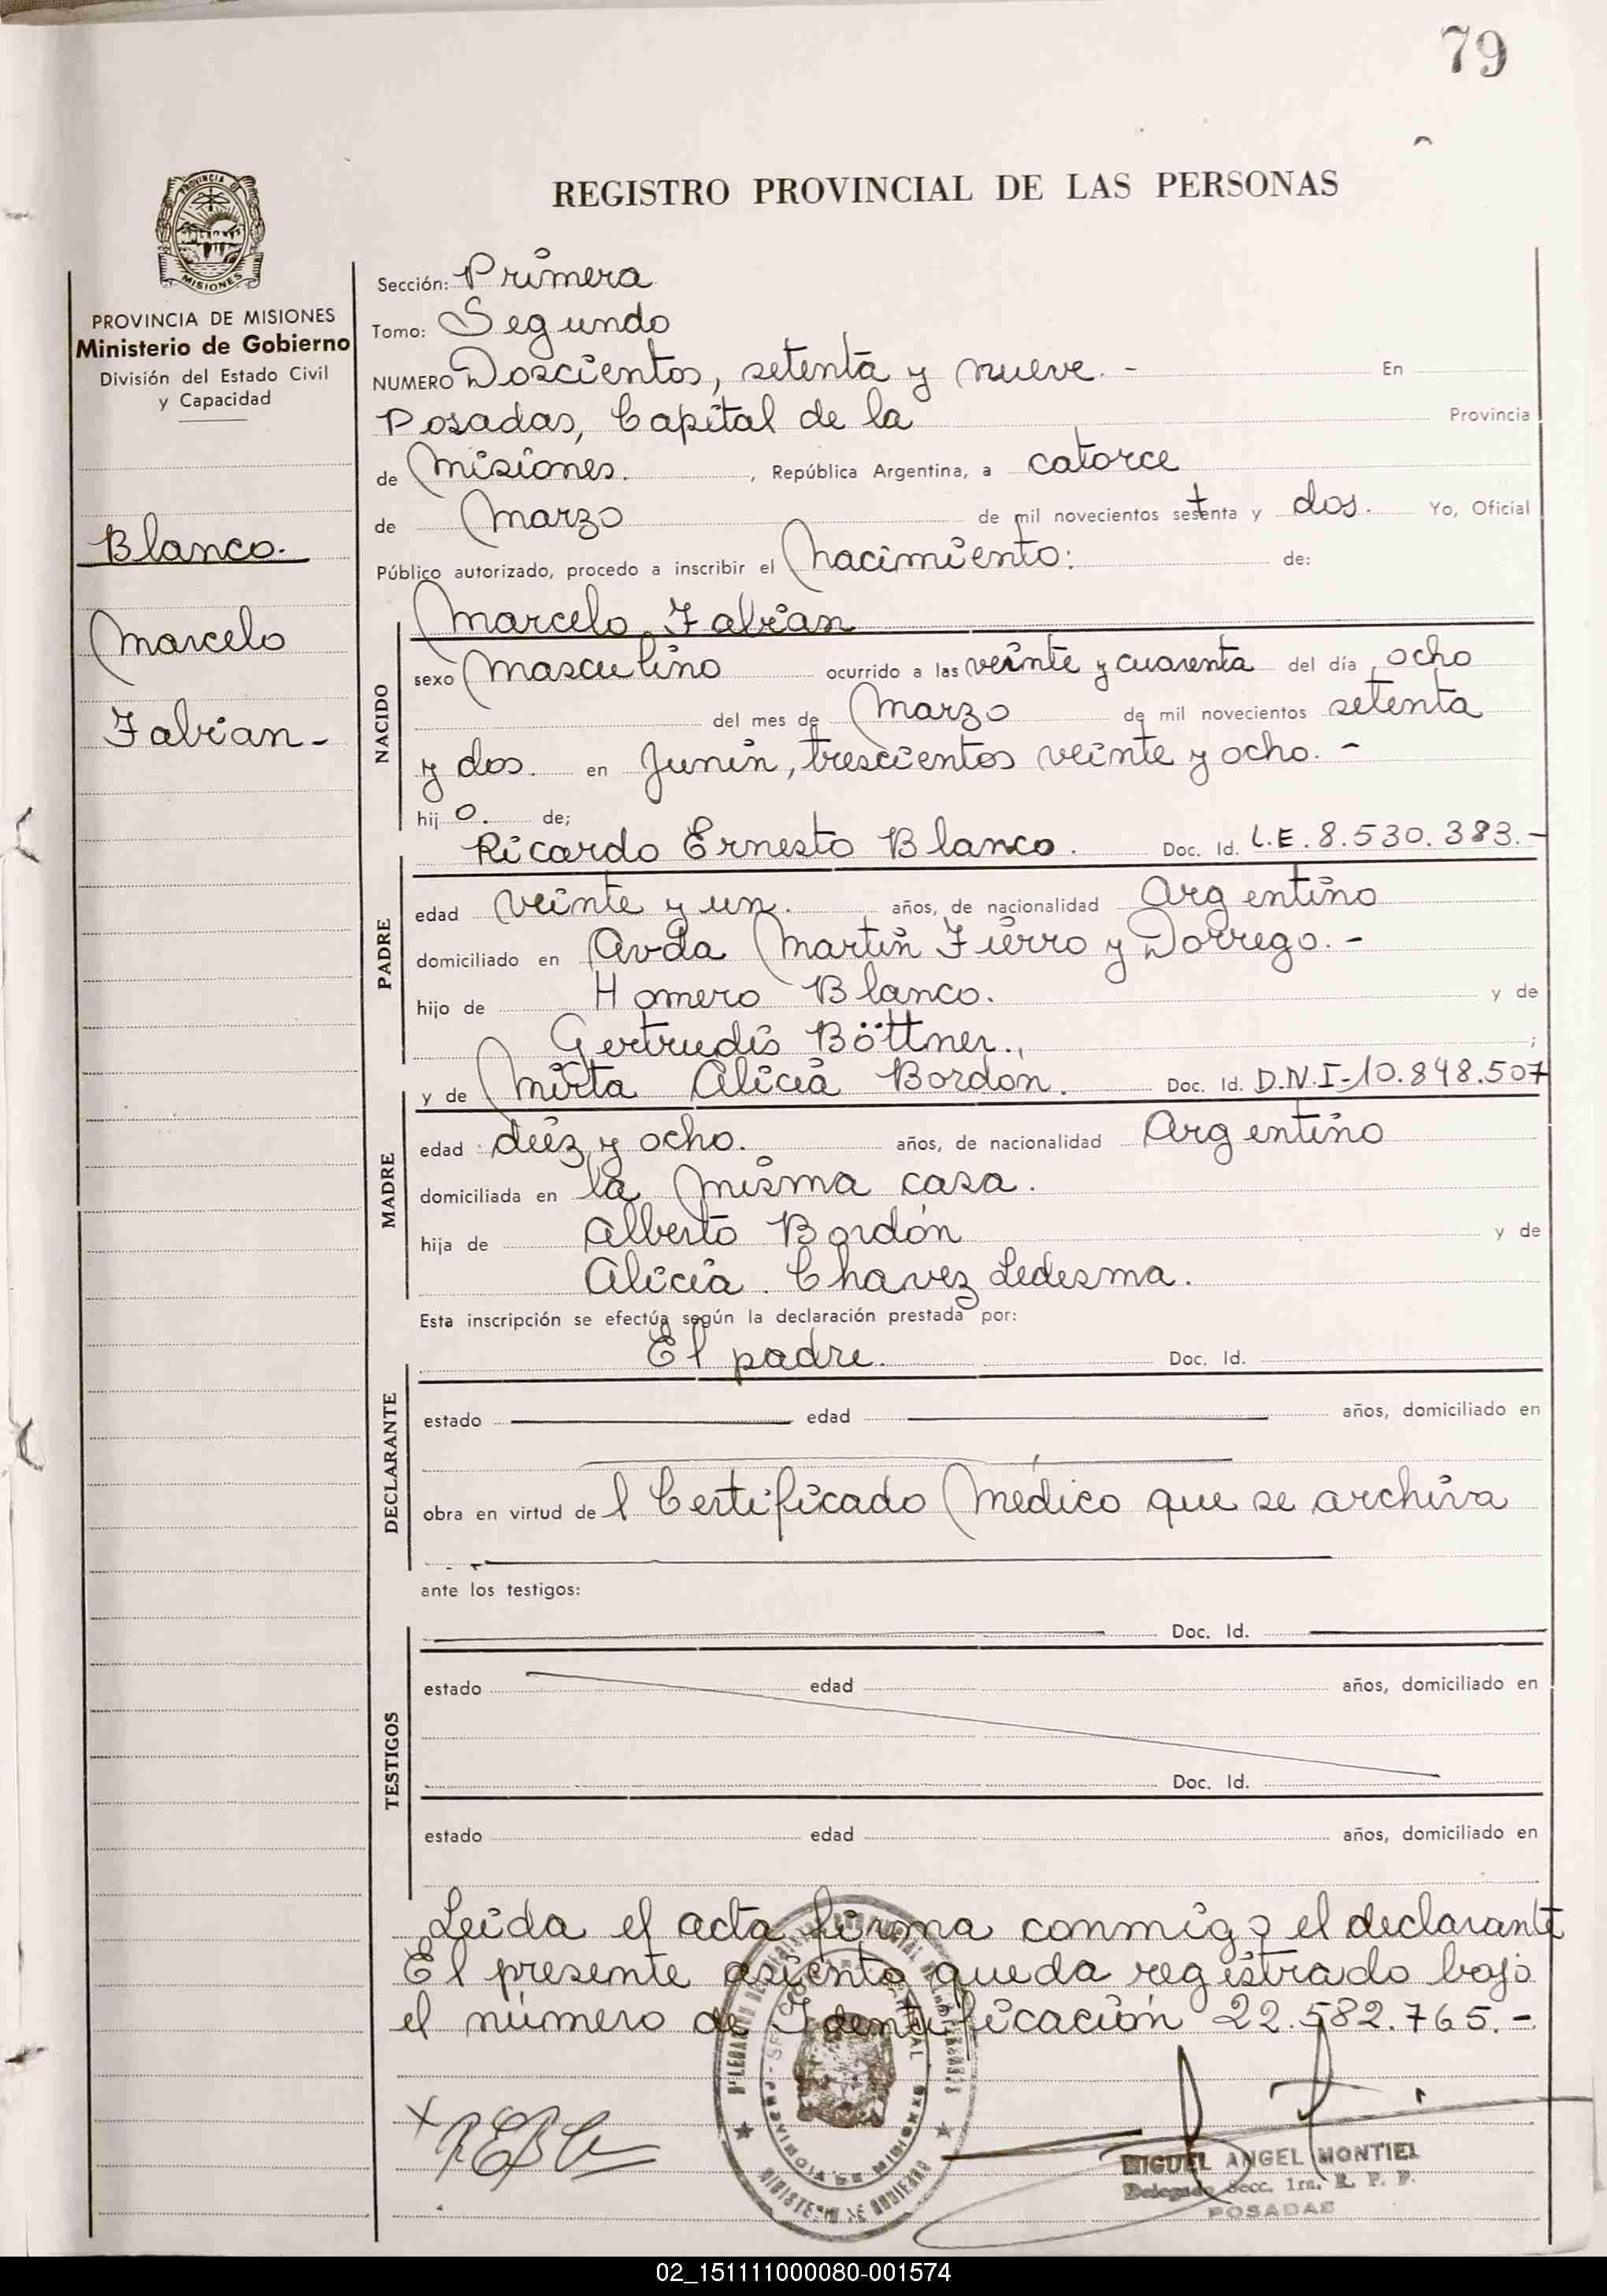 79
REGISTRO PROVINCIAL DE LAS PERSONAS
PROVINCIA DE
MISIONES
PROVINCIA DE MISIONES
Ministerio de Gobierno
División del Estado Civil
y Capacidad
Blanco.
Marcelo
Fabian-
Sección: Primera
Tomo: Segundo
NUMERO Doscientos, setenta y nueve. - En
Posadas, Capital de la Provincia
de Misiones. , República Argentina, a catorce
de Marzo de mil novecientos setenta y dos. Yo, Oficial
Público autorizado, procedo a inscribir el Nacimiento: de:
Marcelo Fabian
NACIDO
sexo Masculino ocurrido a las veinte y cuarenta del día ocho
del mes de Marzo de mil novecientos setenta
y dos. en Junin, trescientos veinte y ocho. -
hij o. de;
Ricardo Ernesto Blanco. Doc. Id. L.E. 8.530.383.-
PADRE
edad veinte y un. años, de nacionalidad Argentino
domiciliado en Avda Martin Fierro y Dorrego. -
hijo de Homero Blanco. y de
Gertrudis Böttner., ;
y de Mirta Alicia Bordon. Doc. Id. D.N.I-10.848.507
MADRE
edad diez y ocho. años, de nacionalidad Argentino
domiciliada en la misma casa.
hija de Alberto Bordón y de
Alicia Chavez Ledesma.
Esta inscripción se efectúa según la declaración prestada por:
El padre. Doc. Id.
DECLARANTE
estado edad años, domiciliado en
obra en virtud de l Certificado Médico que se archiva
ante los testigos:
Doc. Id.
TESTIGOS
estado edad años, domiciliado en
Doc. Id.
estado edad años, domiciliado en
Leida el acta firma conmigo el declarante
El presente asiento queda registrado bajo
el número de Identificación 22.582.765.-
PROVINCIA DE MISIONES
MINISTERIO DE GOBIERNO
MIGUEL ANGEL MONTIEL
Delegado Secc. 1ra. R. P. P.
POSADAS
02_151111000080-001574